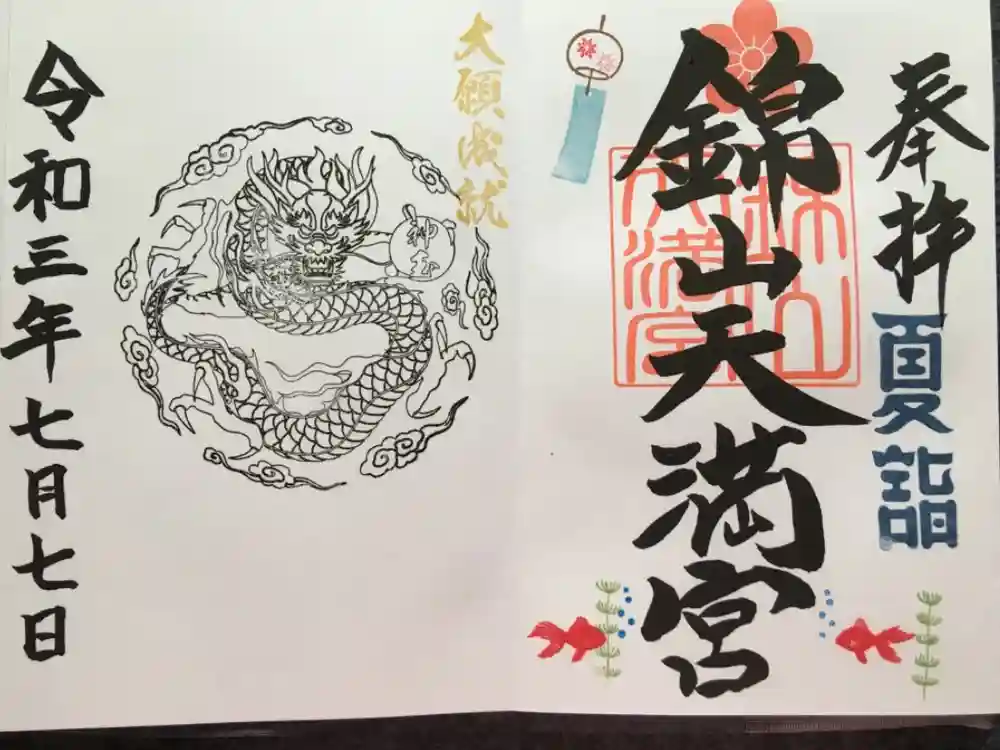 奉拝
夏詣
錦山天満宮
錦山
天満宮
大願成就
神玉
令和三年七月七日